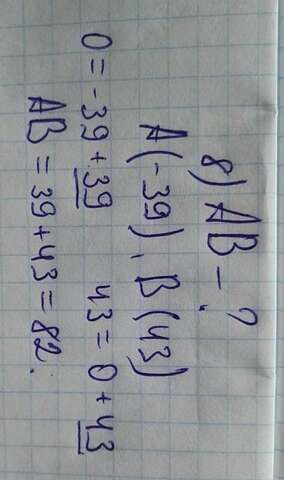 8) AB - ?
A(-39), B(43)
0 = -39 + 39 43 = 0 + 43
AB = 39 + 43 = 82.